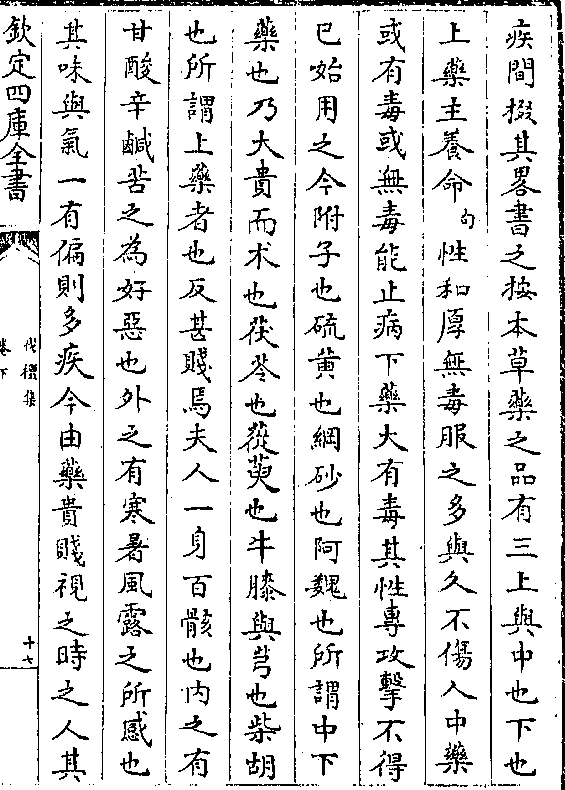 疾間掇其畧書之按本草藥之品有三上與中也下也
上藥主養命句性和厚無毒服之多與久不傷人中藥
或有毒或無毒能止病下藥大有毒其性專攻擊不得
已始用之今附子也硫黄也綱砂也阿魏也所謂中下
藥也乃大貴而术也茯苓也蓯蓉也牛膝與芎也柴胡
也所謂上藥者也反甚賤焉夫人一身百骸也内之有
甘酸辛鹹苦之為好惡也外之有寒暑風露之所感也
其味與氣一有偏則多疾今由藥貴賤視之時之人其
欽定四庫全書
伐檀集
卷下
十七